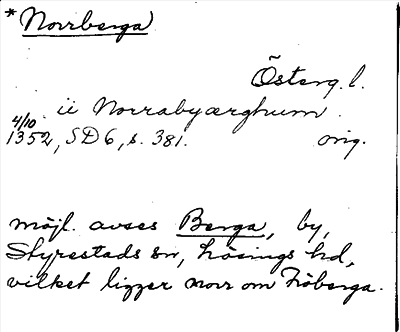 * Norrberga
Österg. l.
ii Norrabyærghum.
4/10
1352, SD 6, s. 381. orig.
möjl. avses Berga, by,
Styrestads sn, Lösings hd,
vilket ligger norr om Fröberga.